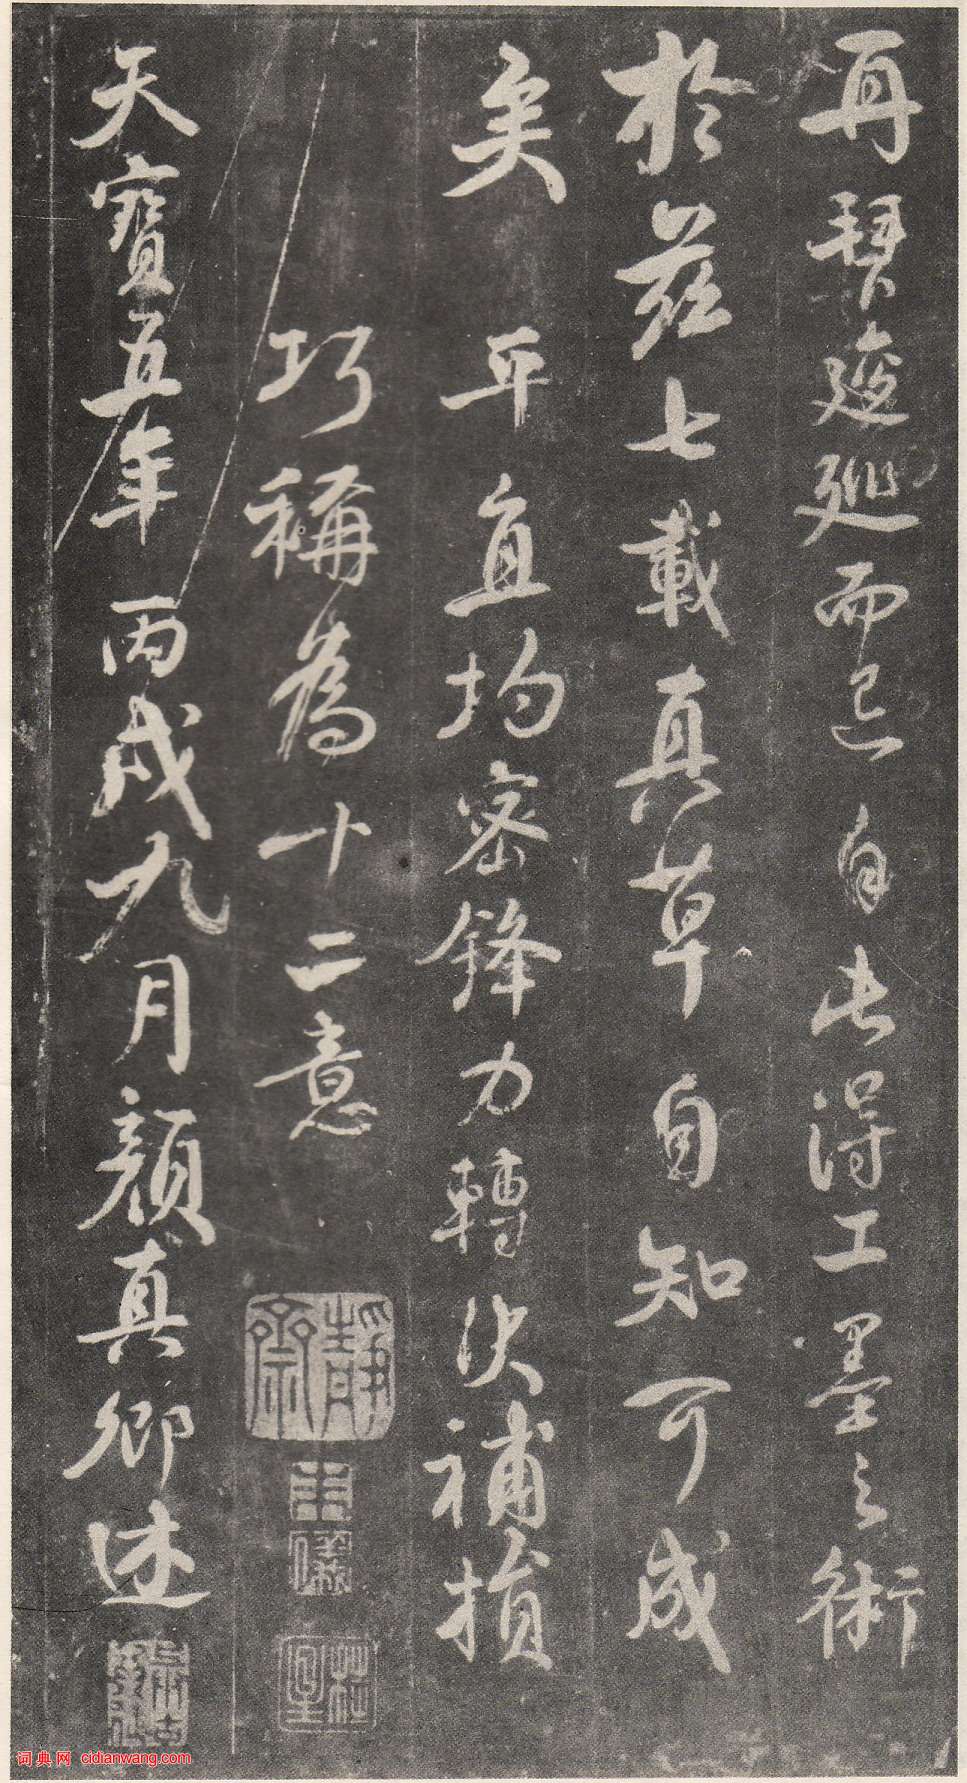 再拜逡巡而已自此得工墨之術
於茲七載真草自知可成
矣 平直均密鋒力轉決補損
巧稱為十二意
天寶五年丙戌九月顏真卿述
靜齋
词典网 cidianwang.com